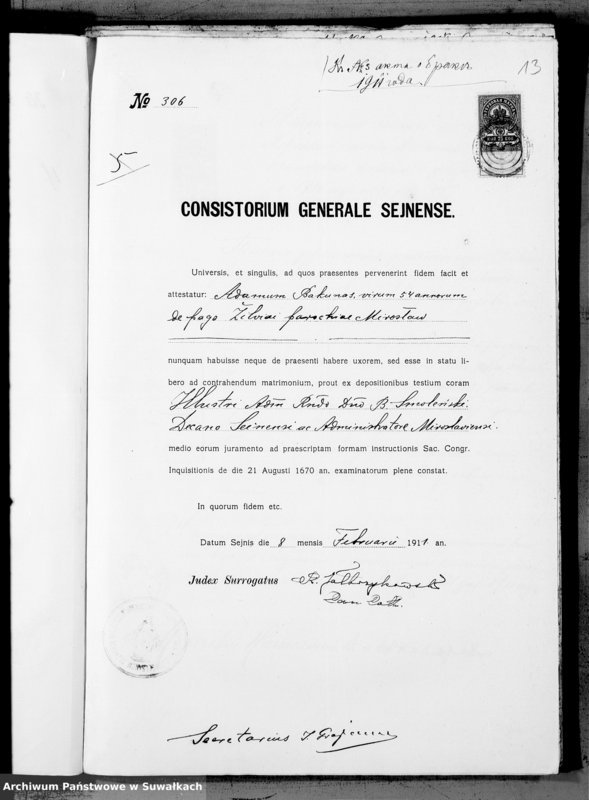 Къ № 3 акта о бракос.
1911 года
13
№ 306
5
CONSISTORIUM GENERALE SEJNENSE.
Universis, et singulis, ad quos praesentes pervenerint fidem facit et
attestatur: Adamum Bakunas, virum 54 annorum
de pago Żelviai parochiae Mirosław
nunquam habuisse neque de praesenti habere uxorem, sed esse in statu li-
bero ad contrahendum matrimonium, prout ex depositionibus testium coram
Illustri Adm Rndo Dno B. Smoleński.
Decano Seinensi ac Administratore Mirosłaviensi.
medio eorum juramento ad praescriptam formam instructionis Sac. Congr.
Inquisitionis de die 21 Augusti 1670 an. examinatorum plene constat.
In quorum fidem etc.
Datum Sejnis die 8 mensis Februarii 1911 an.
Judex Surrogatus R. Jałbrzykowski
Can Cath.
Secretarius
Archiwum Państwowe w Suwałkach